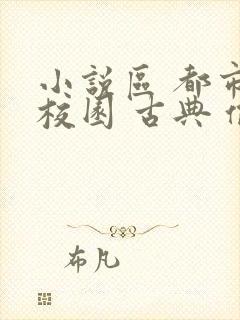 小說區 都市
校園 古典
布凡